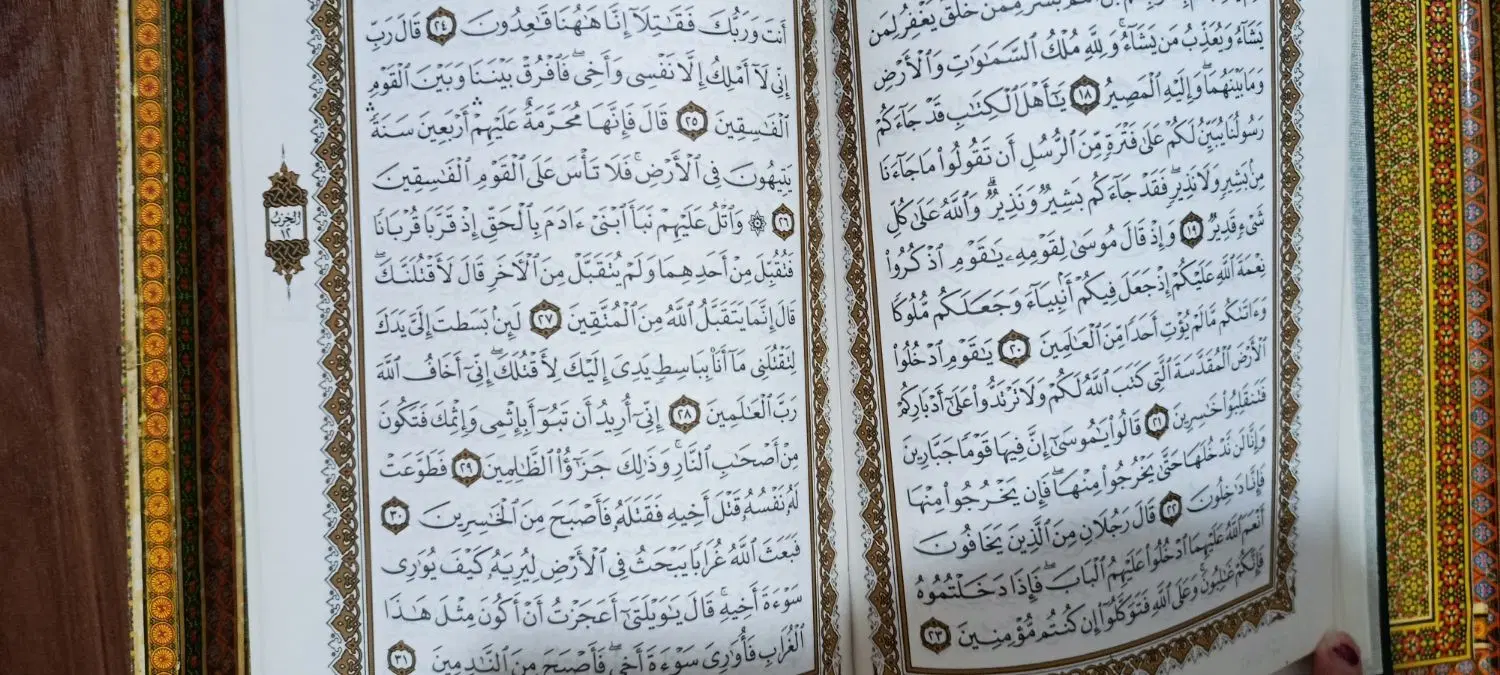 بَشَرٌ مِّمَّنْ خَلَقَ يَغْفِرُ لِمَن
يَشَآءُ وَيُعَذِّبُ مَن يَشَآءُ ۚ وَلِلَّهِ مُلْكُ ٱلسَّمَٰوَٰتِ وَٱلْأَرْضِ
وَمَا بَيْنَهُمَا ۖ وَإِلَيْهِ ٱلْمَصِيرُ ١٨ يَٰٓأَهْلَ ٱلْكِتَٰبِ قَدْ جَآءَكُمْ
رَسُولُنَا يُبَيِّنُ لَكُمْ عَلَىٰ فَتْرَةٍ مِّنَ ٱلرُّسُلِ أَن تَقُولُوا۟ مَا جَآءَنَا
مِنۢ بَشِيرٍ وَلَا نَذِيرٍ ۖ فَقَدْ جَآءَكُم بَشِيرٌ وَنَذِيرٌ ۗ وَٱللَّهُ عَلَىٰ كُلِّ
شَىْءٍ قَدِيرٌ ١٩ وَإِذْ قَالَ مُوسَىٰ لِقَوْمِهِۦ يَٰقَوْمِ ٱذْكُرُوا۟
نِعْمَةَ ٱللَّهِ عَلَيْكُمْ إِذْ جَعَلَ فِيكُمْ أَنۢبِيَآءَ وَجَعَلَكُم مُّلُوكًا
وَءَاتَىٰكُم مَّا لَمْ يُؤْتِ أَحَدًا مِّنَ ٱلْعَٰلَمِينَ ٢٠ يَٰقَوْمِ ٱدْخُلُوا۟
ٱلْأَرْضَ ٱلْمُقَدَّسَةَ ٱلَّتِى كَتَبَ ٱللَّهُ لَكُمْ وَلَا تَرْتَدُّوا۟ عَلَىٰٓ أَدْبَارِكُمْ
فَتَنقَلِبُوا۟ خَٰسِرِينَ ٢١ قَالُوا۟ يَٰمُوسَىٰٓ إِنَّ فِيهَا قَوْمًا جَبَّارِينَ
وَإِنَّا لَن نَّدْخُلَهَا حَتَّىٰ يَخْرُجُوا۟ مِنْهَا فَإِن يَخْرُجُوا۟ مِنْهَا
فَإِنَّا دَٰخِلُونَ ٢٢ قَالَ رَجُلَانِ مِنَ ٱلَّذِينَ يَخَافُونَ
أَنْعَمَ ٱللَّهُ عَلَيْهِمَا ٱدْخُلُوا۟ عَلَيْهِمُ ٱلْبَابَ ۖ فَإِذَا دَخَلْتُمُوهُ
فَإِنَّكُمْ غَٰلِبُونَ ۚ وَعَلَى ٱللَّهِ فَتَوَكَّلُوٓا۟ إِن كُنتُم مُّؤْمِنِينَ ٢٣
أَنتَ وَرَبُّكَ فَقَٰتِلَآ إِنَّا هَٰهُنَا قَٰعِدُونَ ٢٤ قَالَ رَبِّ
إِنِّى لَآ أَمْلِكُ إِلَّا نَفْسِى وَأَخِى ۖ فَٱفْرُقْ بَيْنَنَا وَبَيْنَ ٱلْقَوْمِ
ٱلْفَٰسِقِينَ ٢٥ قَالَ فَإِنَّهَا مُحَرَّمَةٌ عَلَيْهِمْ ۛ أَرْبَعِينَ سَنَةً ۛ
يَتِيهُونَ فِى ٱلْأَرْضِ ۚ فَلَا تَأْسَ عَلَى ٱلْقَوْمِ ٱلْفَٰسِقِينَ
٢٦ ۞ وَٱتْلُ عَلَيْهِمْ نَبَأَ ٱبْنَىْ ءَادَمَ بِٱلْحَقِّ إِذْ قَرَّبَا قُرْبَانًا
فَتُقُبِّلَ مِنْ أَحَدِهِمَا وَلَمْ يُتَقَبَّلْ مِنَ ٱلْءَاخَرِ قَالَ لَأَقْتُلَنَّكَ ۖ
قَالَ إِنَّمَا يَتَقَبَّلُ ٱللَّهُ مِنَ ٱلْمُتَّقِينَ ٢٧ لَئِنۢ بَسَطتَ إِلَىَّ يَدَكَ
لِتَقْتُلَنِى مَآ أَنَا۠ بِبَاسِطٍ يَدِىَ إِلَيْكَ لِأَقْتُلَكَ ۖ إِنِّىٓ أَخَافُ ٱللَّهَ
رَبَّ ٱلْعَٰلَمِينَ ٢٨ إِنِّىٓ أُرِيدُ أَن تَبُوٓأَ بِإِثْمِى وَإِثْمِكَ فَتَكُونَ
مِنْ أَصْحَٰبِ ٱلنَّارِ ۚ وَذَٰلِكَ جَزَٰٓؤُا۟ ٱلظَّٰلِمِينَ ٢٩ فَطَوَّعَتْ
لَهُۥ نَفْسُهُۥ قَتْلَ أَخِيهِ فَقَتَلَهُۥ فَأَصْبَحَ مِنَ ٱلْخَٰسِرِينَ ٣٠
فَبَعَثَ ٱللَّهُ غُرَابًا يَبْحَثُ فِى ٱلْأَرْضِ لِيُرِيَهُۥ كَيْفَ يُوَٰرِى
سَوْءَةَ أَخِيهِ ۚ قَالَ يَٰوَيْلَتَىٰٓ أَعَجَزْتُ أَنْ أَكُونَ مِثْلَ هَٰذَا
ٱلْغُرَابِ فَأُوَٰرِىَ سَوْءَةَ أَخِى ۖ فَأَصْبَحَ مِنَ ٱلنَّٰدِمِينَ ٣١
الحِزْبُ
١٢